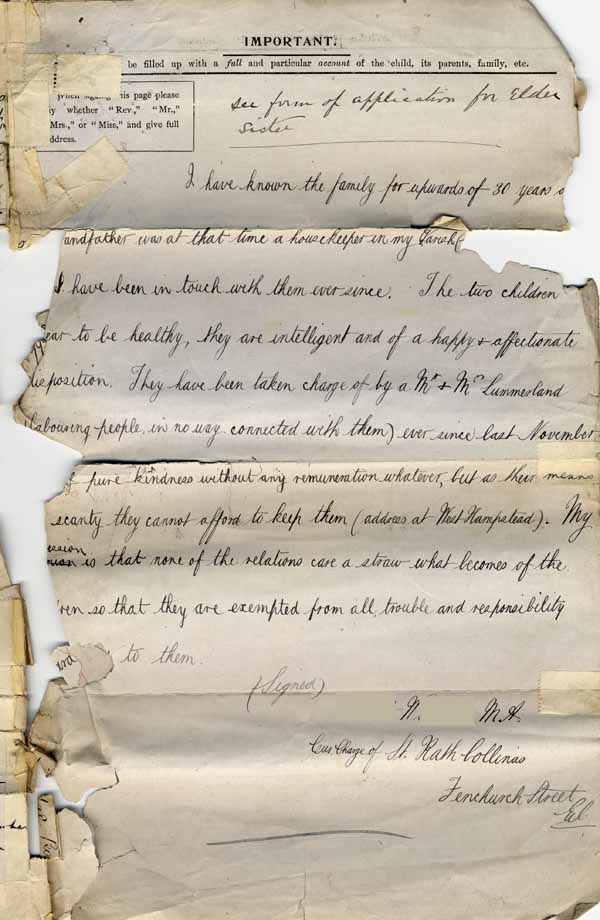 IMPORTANT.
be filled up with a full and particular account of the child, its parents, family, etc.
When signing this page please
y whether "Rev.," "Mr.,"
Mrs.," or "Miss," and give full
ddress.
see form of application for Elder
Sister
I have known the family for upwards of 30 years
andfather was at that time a housekeeper in my Parish
I have been in touch with them ever since. The two children
ear to be healthy, they are intelligent and of a happy & affectionate
disposition. They have been taken charge of by a Mr & Mrs Lummerland
(labouring people, in no way connected with them) ever since last November
of pure kindness without any remuneration whatever, but as their means
scanty they cannot afford to keep them (address at West Hampstead). My
ession is that none of the relations care a straw what becomes of the
ren so that they are exempted from all trouble and responsibility
ard to them.
(Signed)
W. M.A.
Cur Charge of St. Kath Collinas
Fenchurch Street